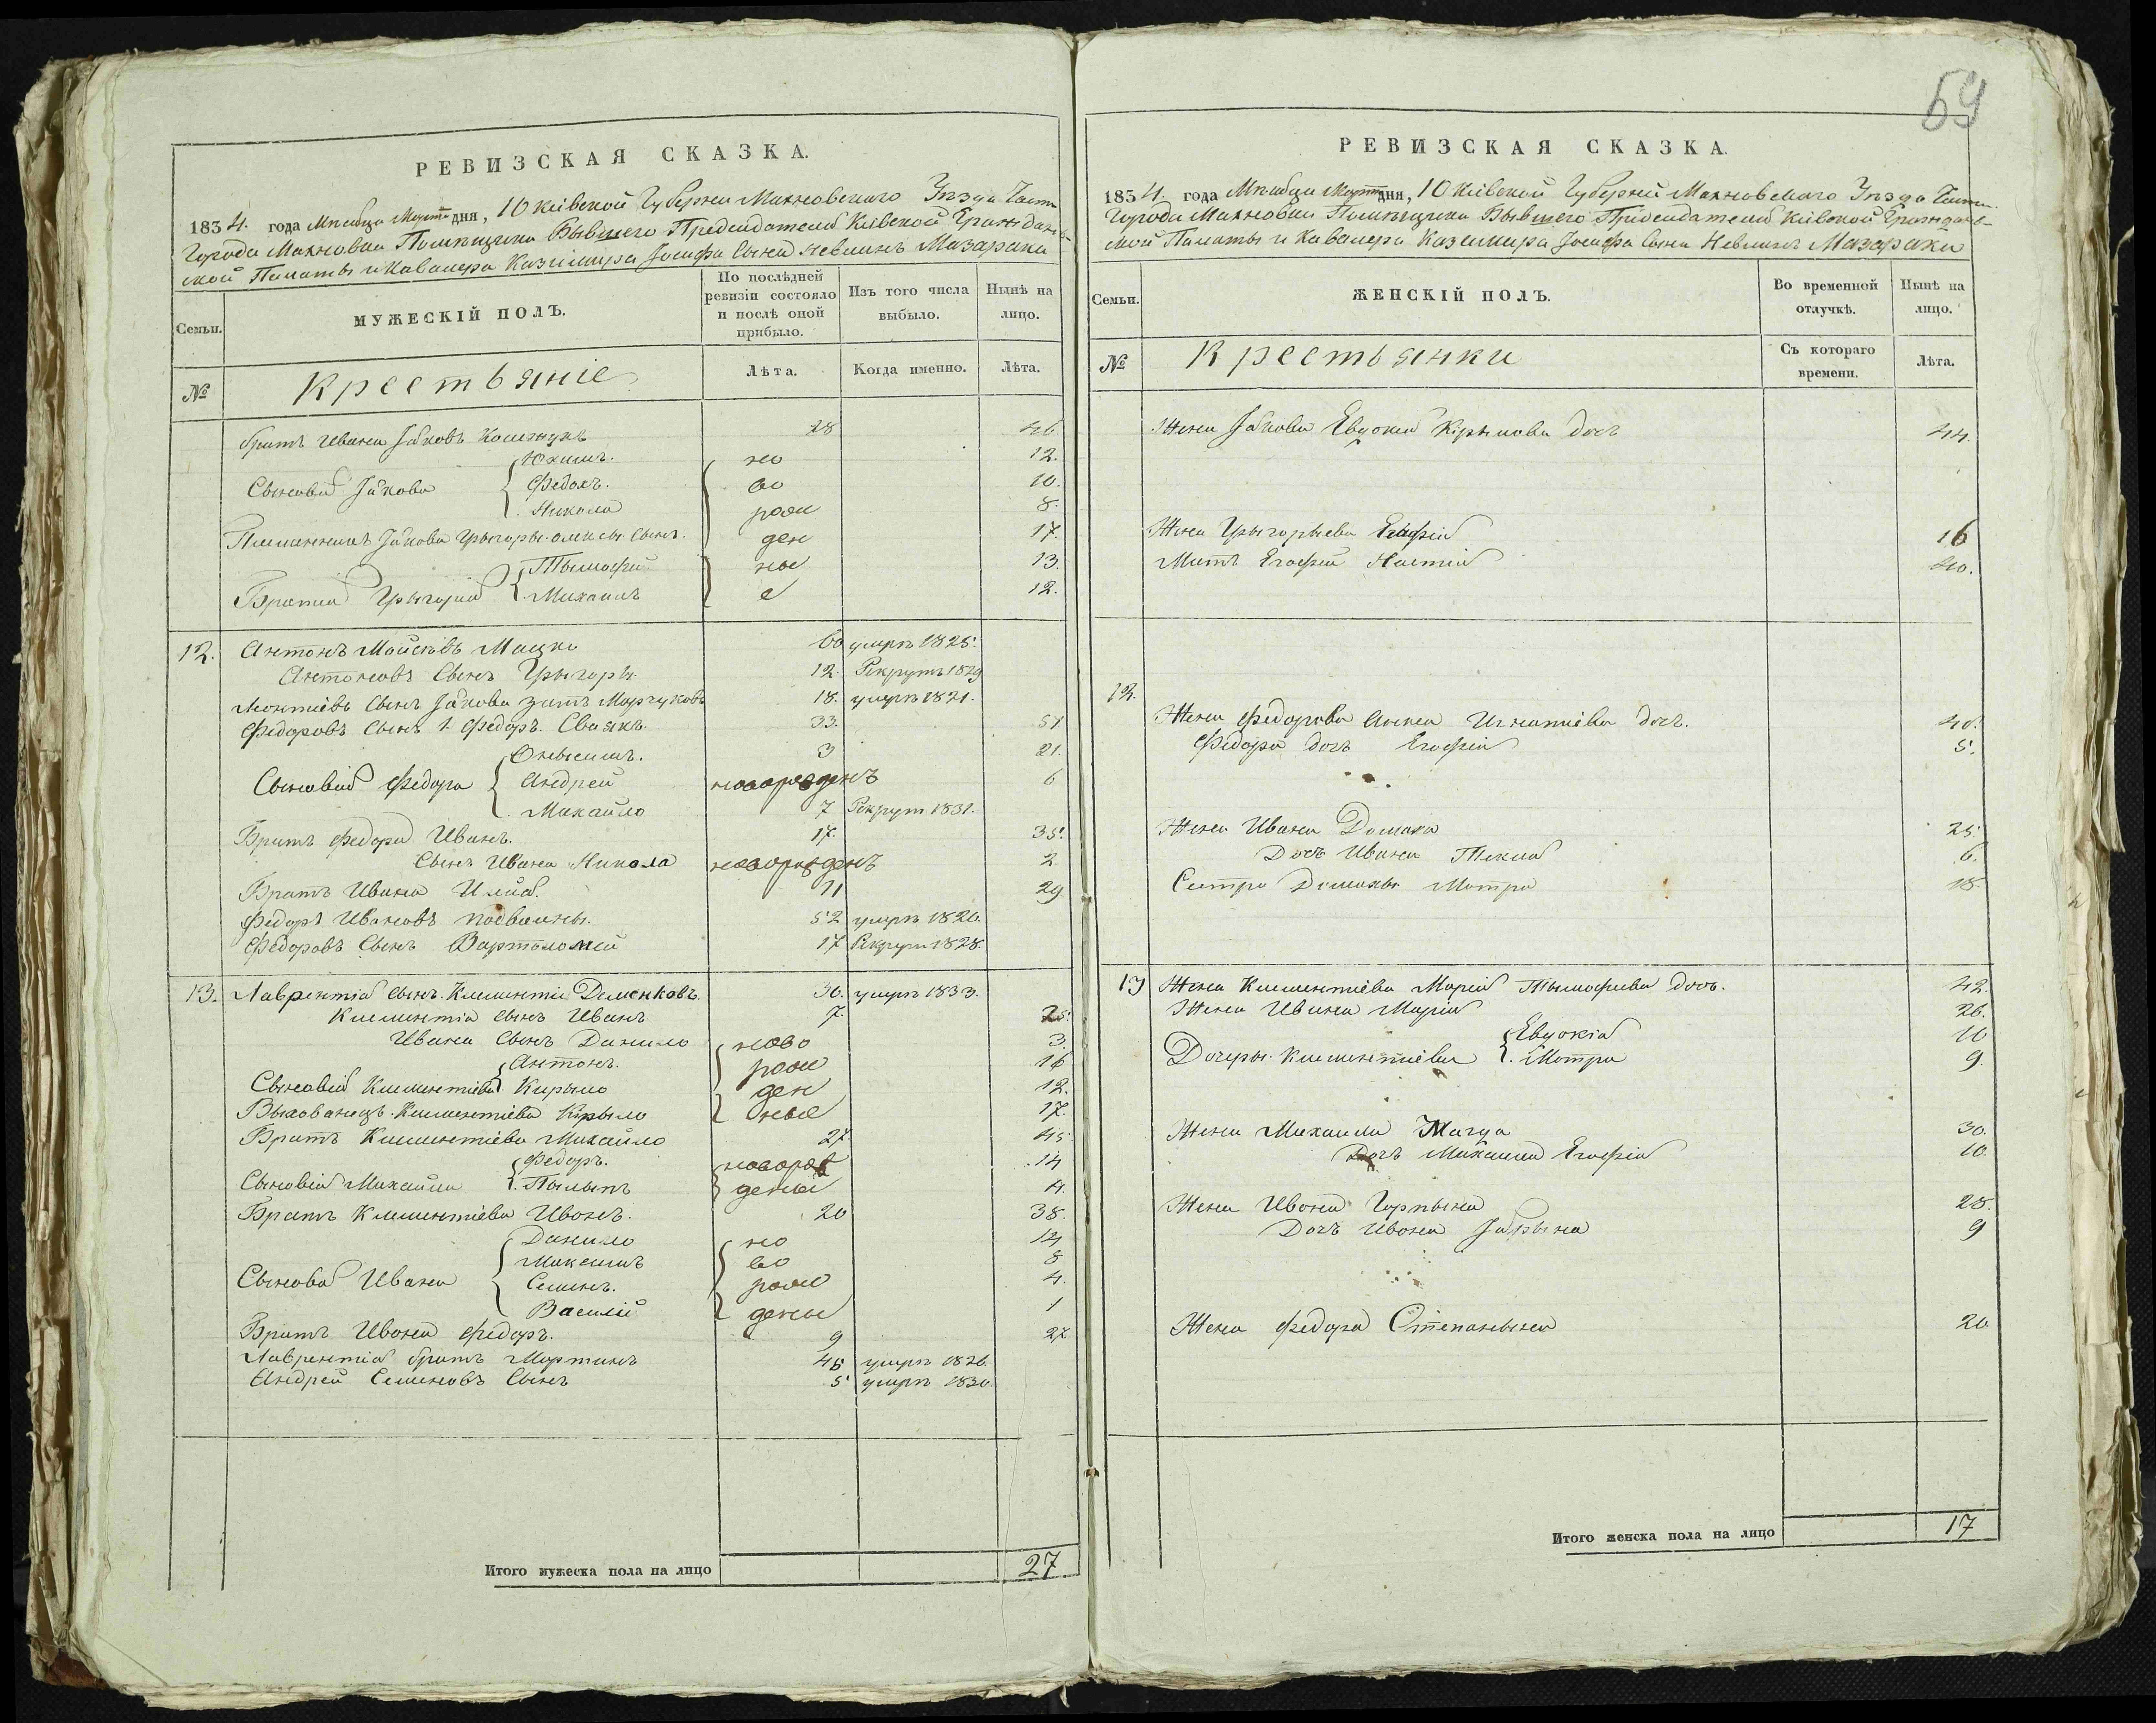 РЕВИЗСКАЯ СКАЗКА.
1834. года Месяца Марта дня, 10 Кіевской Губерніи Махновского Уезда Части
Города Махновки Помещика Бывшего Председателя Кіевской Гражданс-
кой Палаты и Кавалера Казимира Іосифа Сына Мазараки
Семьи.
МУЖЕСКІЙ ПОЛЪ.
По послѣдней ревизіи состояло и послѣ оной прибыло.
Изъ того числа выбыло.
Нынѣ на лицо.
№
Крестьяніе
Лѣта.
Когда именно.
Лѣта.
братъ Ивана Іаковъ 28 46
Юхимъ. но 12.
Сыновья Іакова Федохъ. во 10.
Никола рож 8.
Племянникъ Іакова Грыгоры сынъ. ден 17.
Тымофей ные 13.
Братія Грыгорія Михаилъ е 12.
12. Антонъ Мойсѣевъ Мацко 60 умре 1825.
Антоновъ Сынъ Грыгоры 12. Рекрутъ 1829
Сынъ Іакова зять Марчуковъ 18. умре 1821.
Федоровъ Сынъ 1. Федоръ. Своякъ. 33. 51
Онысимъ. 3 21.
Сыновья Федора Андрей новорожденъ 6
Михайло 7 Рекрут 1831.
Братъ Федора Иванъ. 17. 35.
Сынъ Ивана Никола новорожденъ 2
Братъ Ивана Илья. 11 29.
Федоръ Ивановъ 52 умре 1820.
Федоровъ Сынъ Вартоломей 17 Рекрут 1828.
13. Лаврентія сынъ. Климентіи Деменковъ. 36. умре 1833.
Климентія сынъ Иванъ 7. 25.
Ивана Сынъ Данило ново 3.
Антонъ. рож 16
Сыновія Климентіева Кирыло ден 12.
Выхованецъ Климентіева Кирыло ные 17.
Братъ Климентіева Михайло 27 45
Федоръ. новорож 14
Сыновія Михайла Пылыпъ дены 4.
Братъ Климентіева Ивонъ. 20 38.
Данило но 14
Максимъ во 8
Сыновья Ивана Семенъ. рож 4.
Василій дены 1
Братъ Ивона Федоръ. 9 27
Лаврентія братъ Мартинъ 45 умре 1826.
Андрей Семеновъ Сынъ 5 умре 1830.
Итого мужеска пола на лицо 27
59
РЕВИЗСКАЯ СКАЗКА.
1834. года Месяца Марта дня, 10 Кіевской Губерніи Махновского Уезда Части
Города Махновки Помещика Бывшего Председателя Кіевской Гражданс-
кой Палаты и Кавалера Казимира Іосифа Сына Мазараки
Семьи.
ЖЕНСКІЙ ПОЛЪ.
Во временной отлучкѣ.
Нынѣ на лицо.
№
Крестьянки
Съ котораго времени.
Лѣта.
Жена Іакова Евдокія Кірыкова дочь 44.
Жена Грыгорыева Егафія 16
Мать Егафіи Настія 40.
12.
Жена Федорова Анна Игнатіева дочь. 40.
Федора дочь Егафія 5.
Жена Ивана Домаха 25.
Дочь Ивана Текля 6.
Сестра Домахы Мотря 18.
13 Жена Климентіева Марія Тымофеева дочь. 42.
Жена Ивана Марія 26.
Евдокія 10
Дочеры Климентіева Мотря 9.
Жена Михаила Магда 30.
Дочь Михаила Егафія 10.
Жена Ивона Горпына 28.
Дочь Ивона Ірына 9
Жена Федора Степаныха 20
Итого женска пола на лицо 17